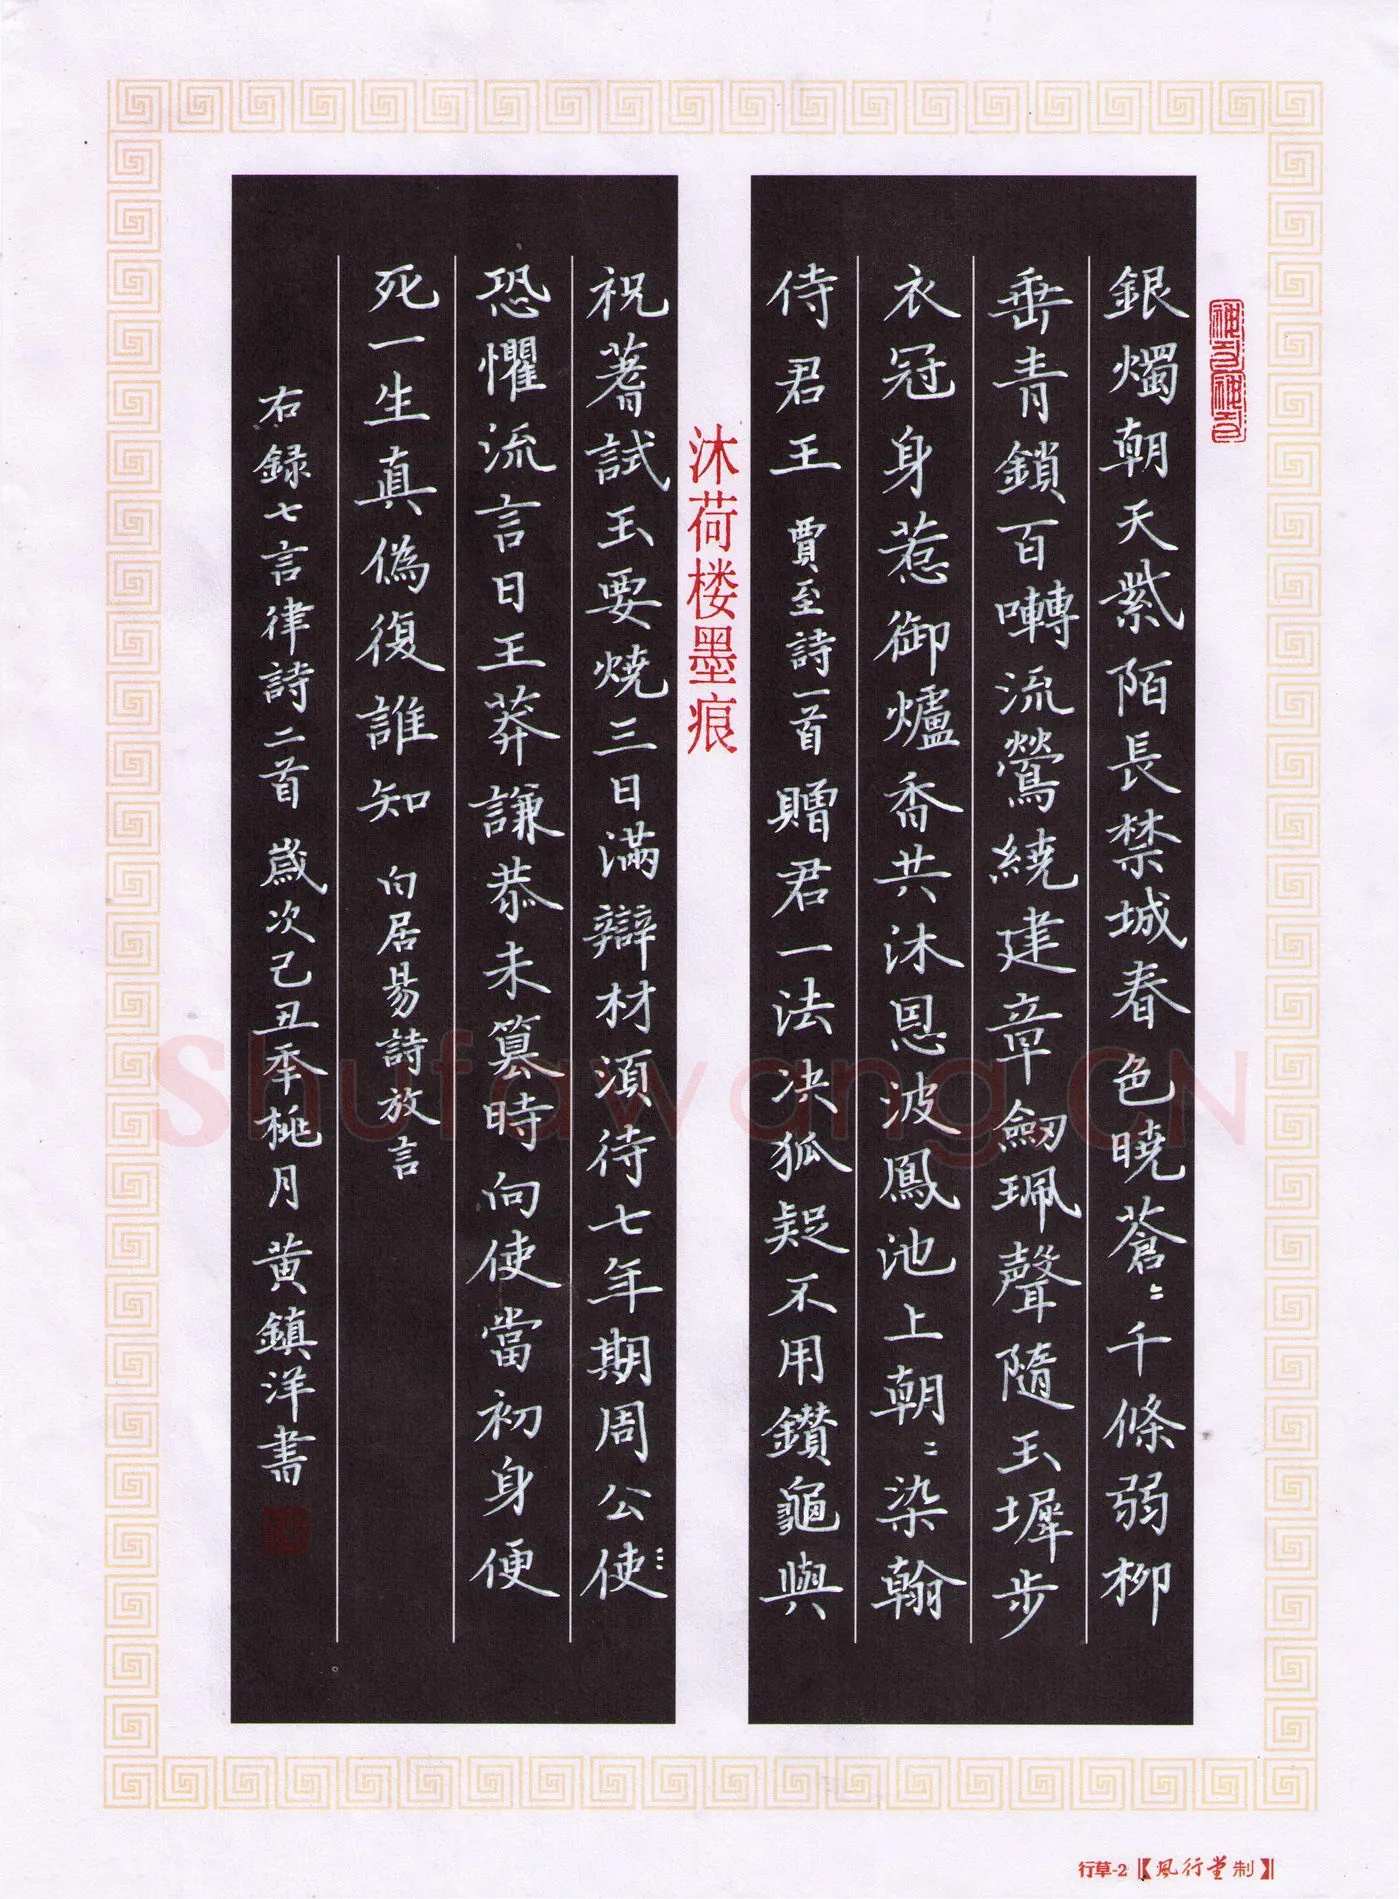 銀燭朝天紫陌長禁城春色曉蒼〻千條弱柳
垂青鎖百囀流鶯繞建章劒珮聲隨玉墀步
衣冠身惹御爐香共沐恩波鳳池上朝〻染翰
侍君王 賈至詩一首 贈君一法决狐疑不用鑽龜與
沐荷楼墨痕
祝蓍試玉要燒三日滿辯材須待七年期周公使
恐懼流言日王莽謙恭未篡時向使當初身便
死一生真偽復誰知 白居易詩放言
右録七言律詩二首 歲次己丑年桃月 黄鎮洋書
Shufawang.CN
行草-2【風行堂制】